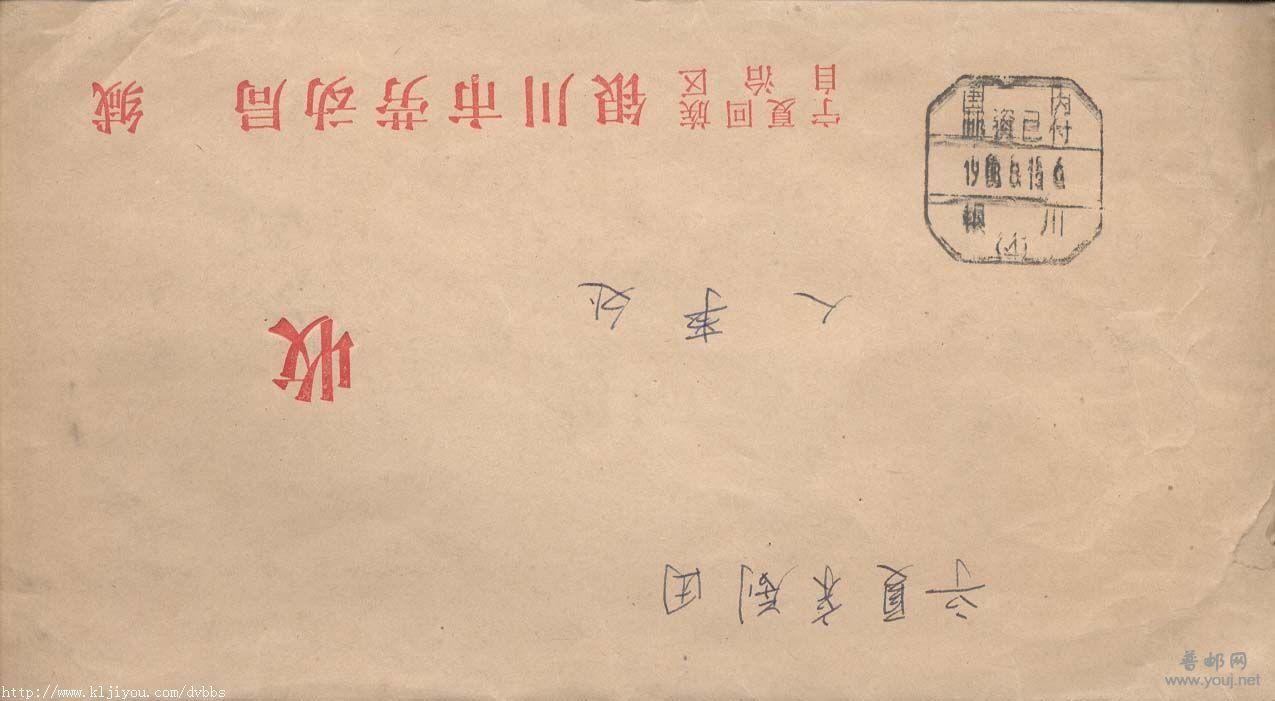 宁夏京剧团
人事处
收
宁夏回族
自治区
银川市劳动局 缄
国内
邮资已付
银川
普邮网
www.youj.net
http://www.kljiyou.com/dvbbs